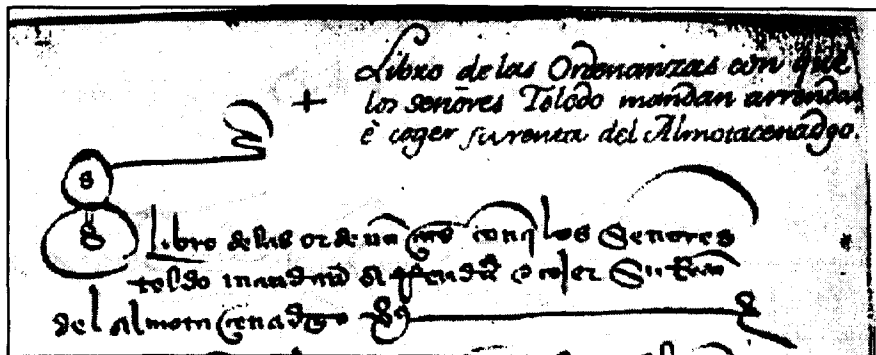 Libro de las Ordenanzas con que
los señores Toledo mandan arrendar
è coger su renta del Almotacenadgo.
+
s
libro delas ordenanças conq los Señores
toldo mandan arrendar e cojer Su Renta
del almotacenadgo